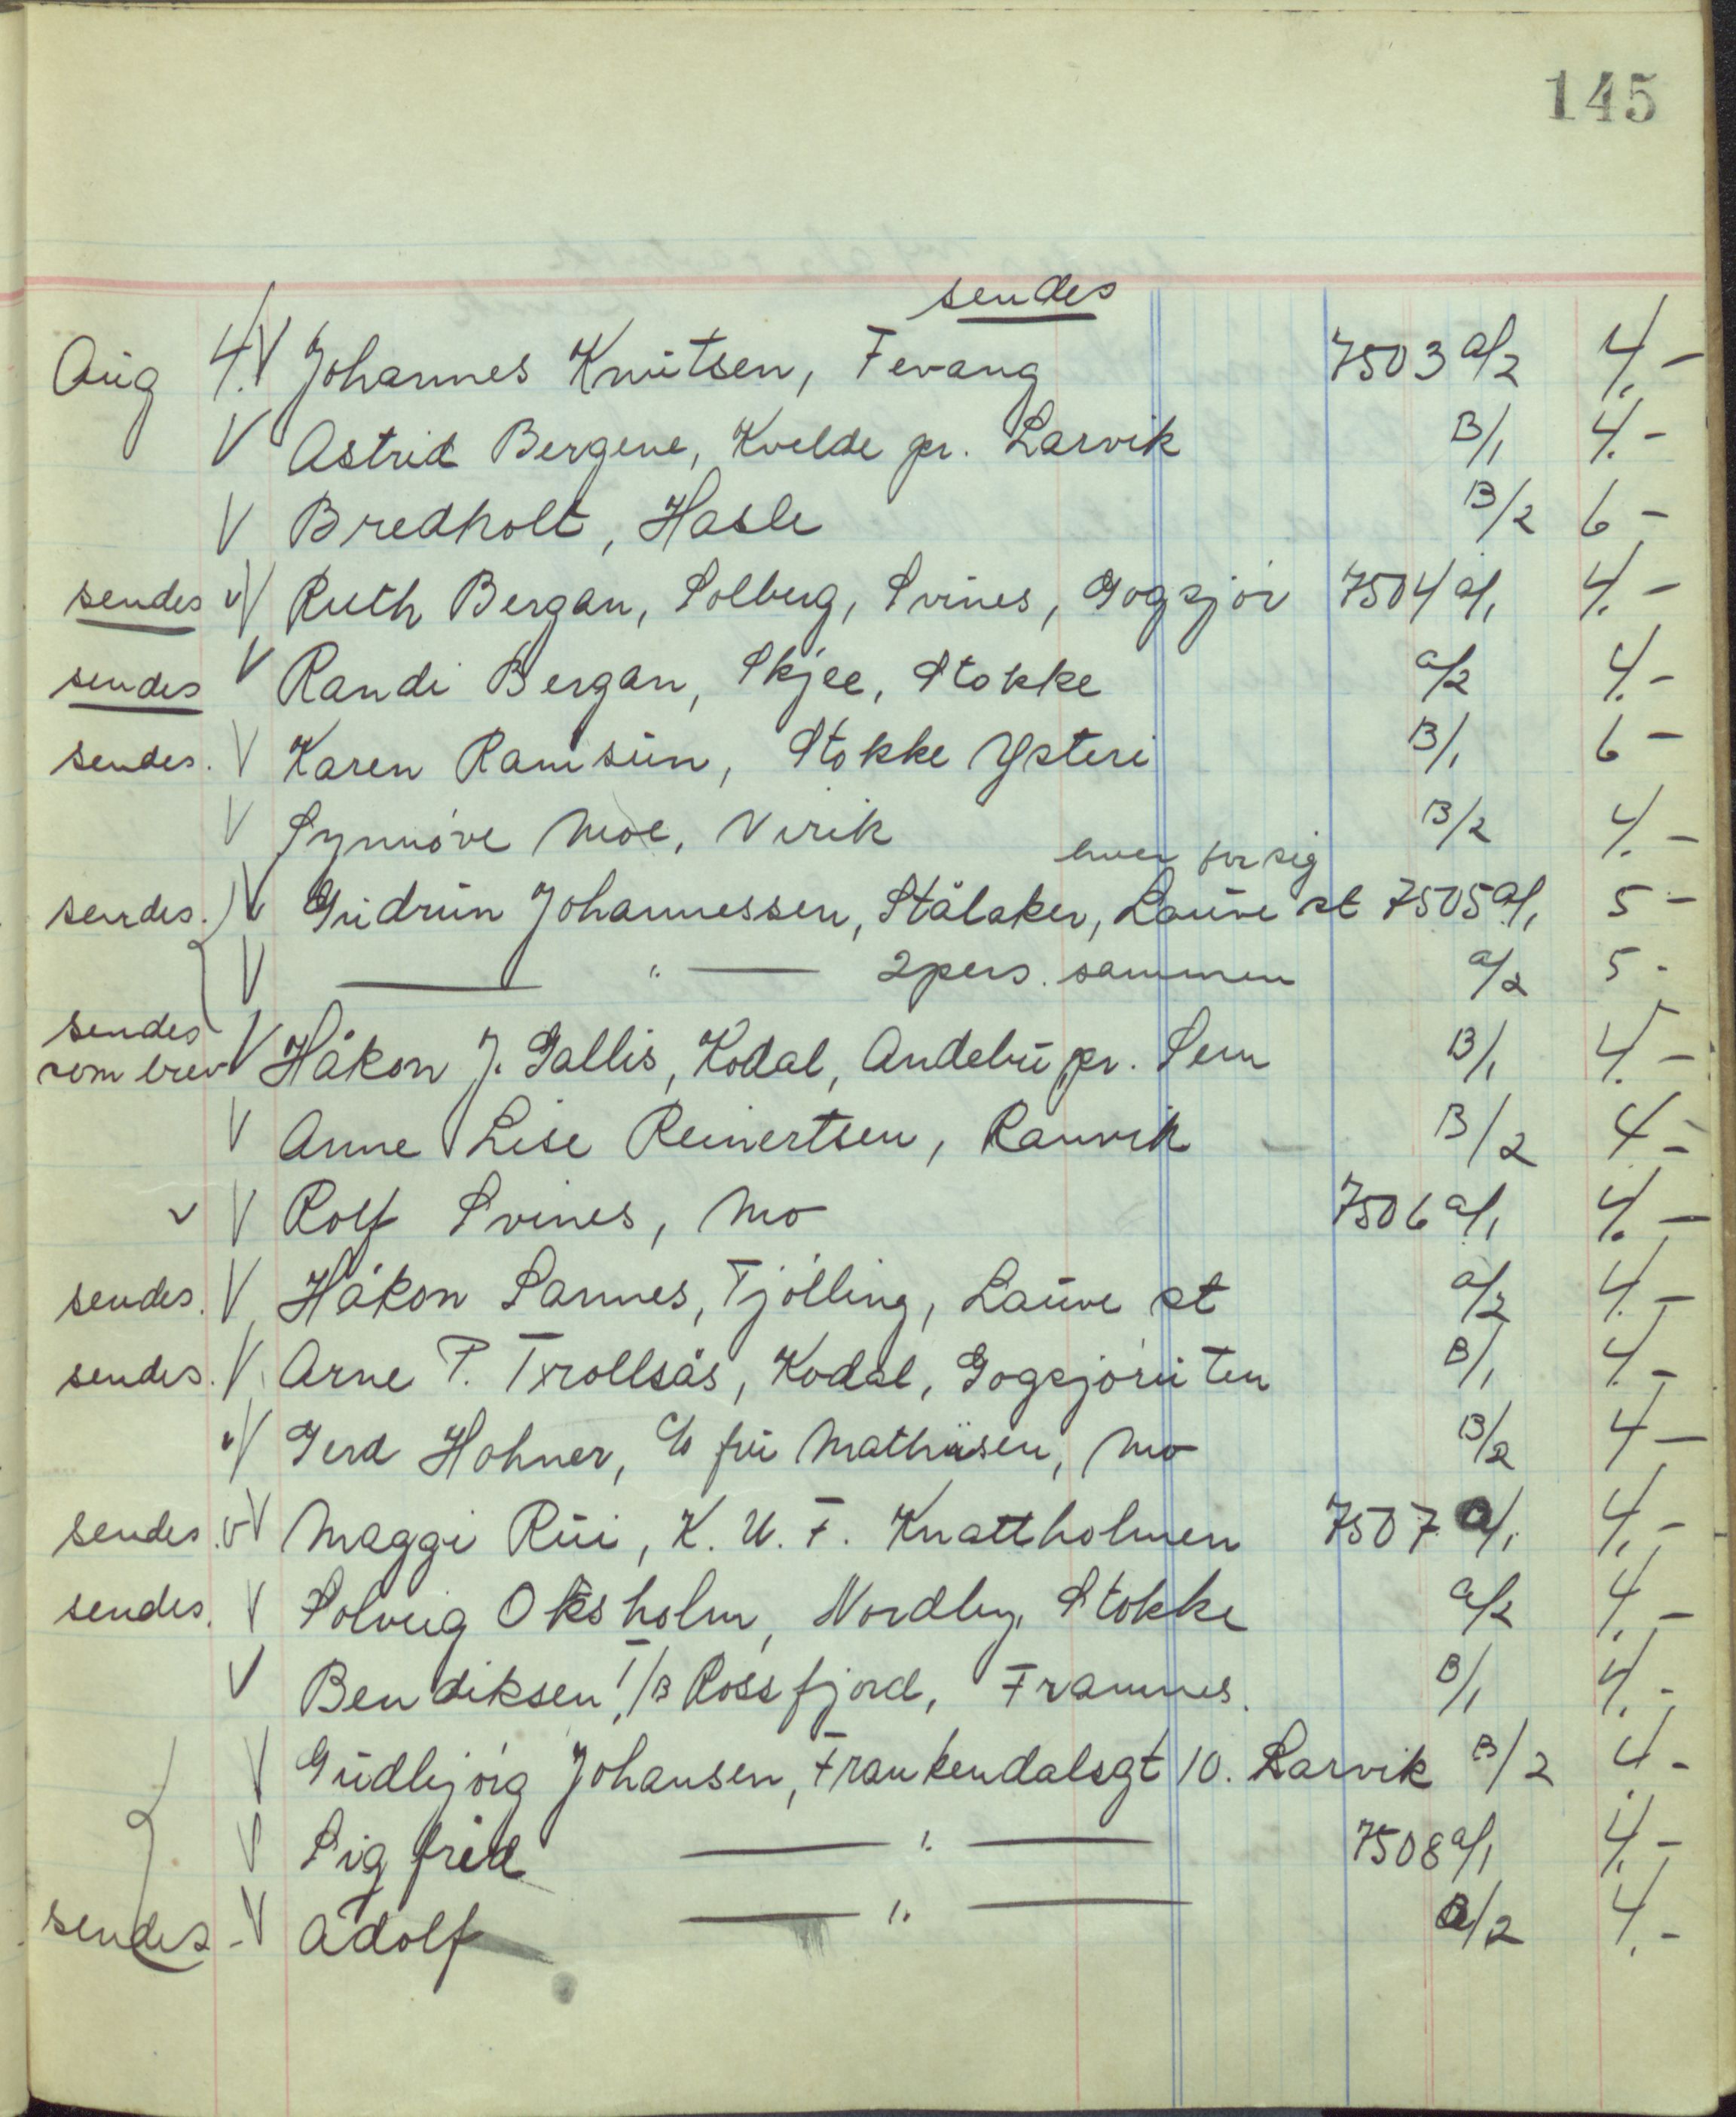 145
sendes
Aug 4. V Johannes Knutsen, Fevang 7503 a/2 4.-
V Astrid Bergene, Kvelde pr. Larvik B/1 4.-
V Bredholt, Hasle B/2 6 -
sendes V Ruth Bergan, Solberg, Svines, Gogsjør 7504 a/1 4.-
sendes V Randi Bergan, Skjee, Stokke a/2 4.-
sendes. V Karen Ramsum, Stokke Ysteri B/1 6 -
V Synnøve Moe, Virik B/2 4.-
hver for sig
sendes. V Gudrun Johannessen, Stålaker, Lauve st 7505 a/1 5 -
V — " — 2 pers. sammen a/2 5 -
sendes
som brev V Håkon J. Gallis, Kodal, Andebu pr. Sem B/1 4.-
V Anne Lise Reinertsen, Ranvik B/2 4 -
v V Rolf Svines, Mo 7506 a/1 4.-
sendes. V Håkon Sannes, Tjølling, Lauve st a/2 4.-
sendes. V Arne P. Trollsås, Kodal, Gogsjøruten B/1 4.-
v V Gerd Hohner, c/o fru Mathisen, Mo B/2 4 -
sendes. v V Maggi Rui, K. U. F. Knattholmen 7507 a/1 4.-
sendes. V Solveig Oksholm, Nordby, Stokke a/2 4.-
V Bendiksen, T/B Rossfjord, Framnes. B/1 4.-
V Gudbjørg Johansen, Frankendalsgt 10. Larvik B/2 4.-
V Sigfrid — " — 7508 a/1 4.-
sendes - V Adolf — " — a/2 4.-